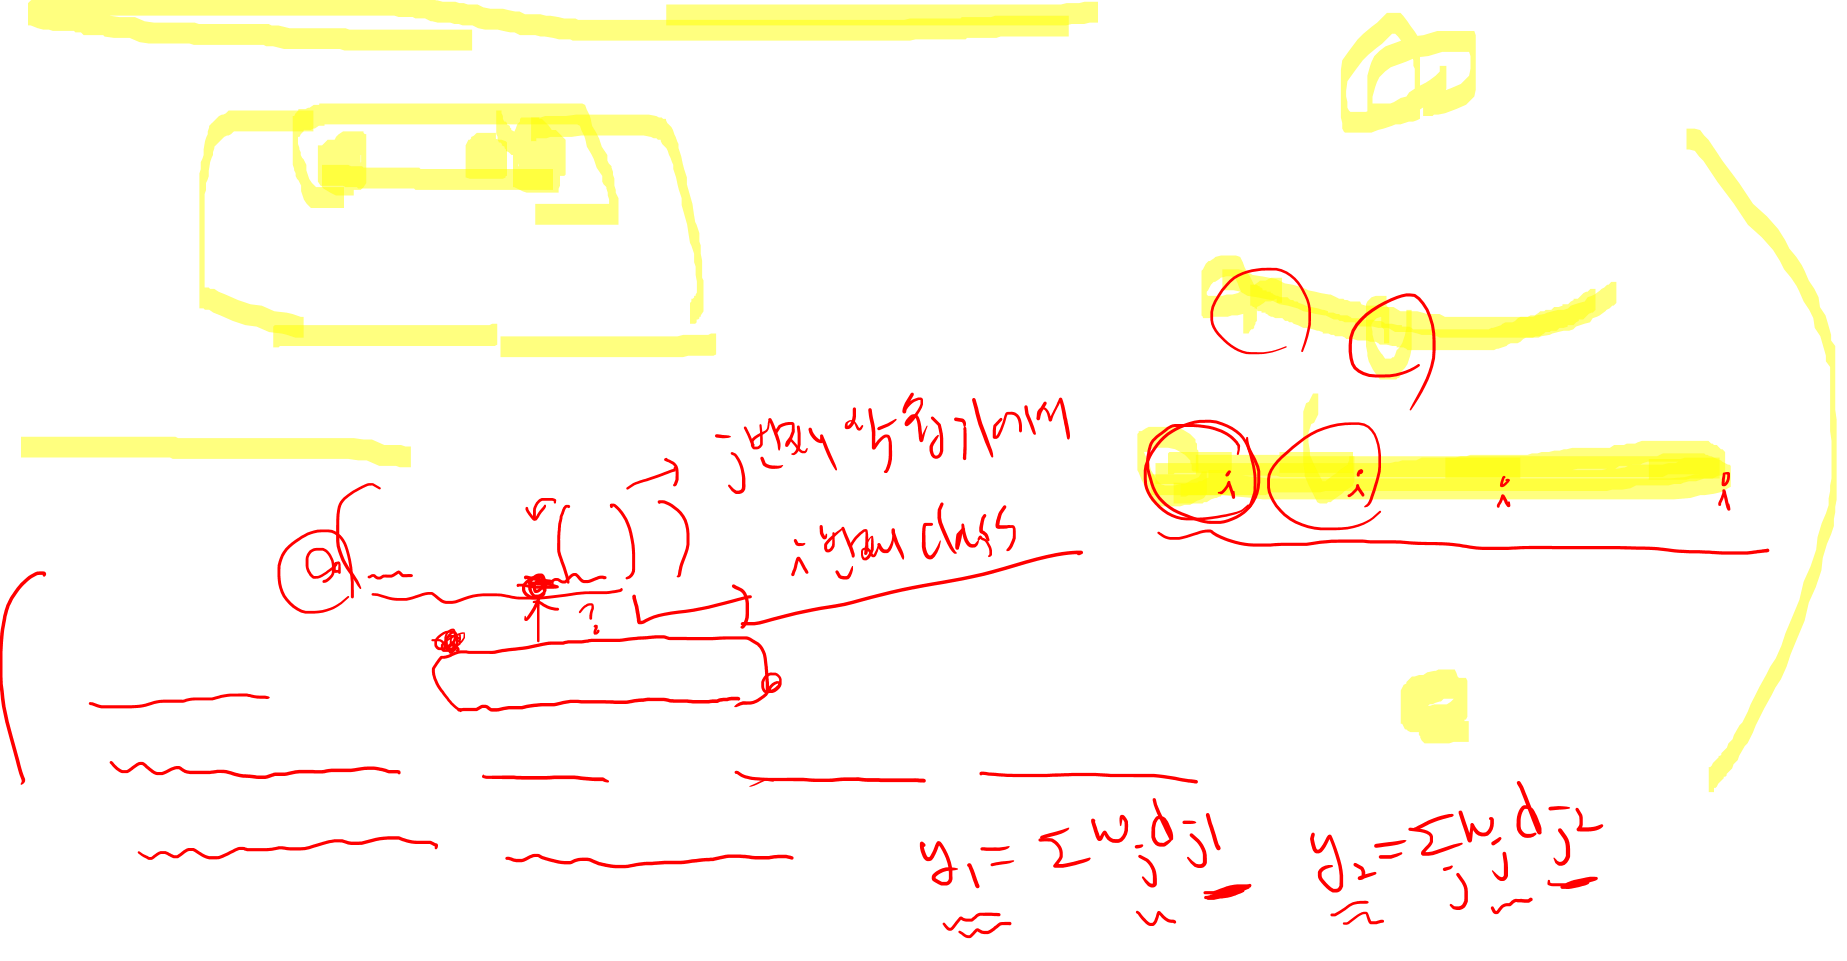 j번째 학습기에서
i번째 class
i i i i
?
y₁ = Σ wⱼ dⱼ₁
y₂ = Σⱼ wⱼ dⱼ₂